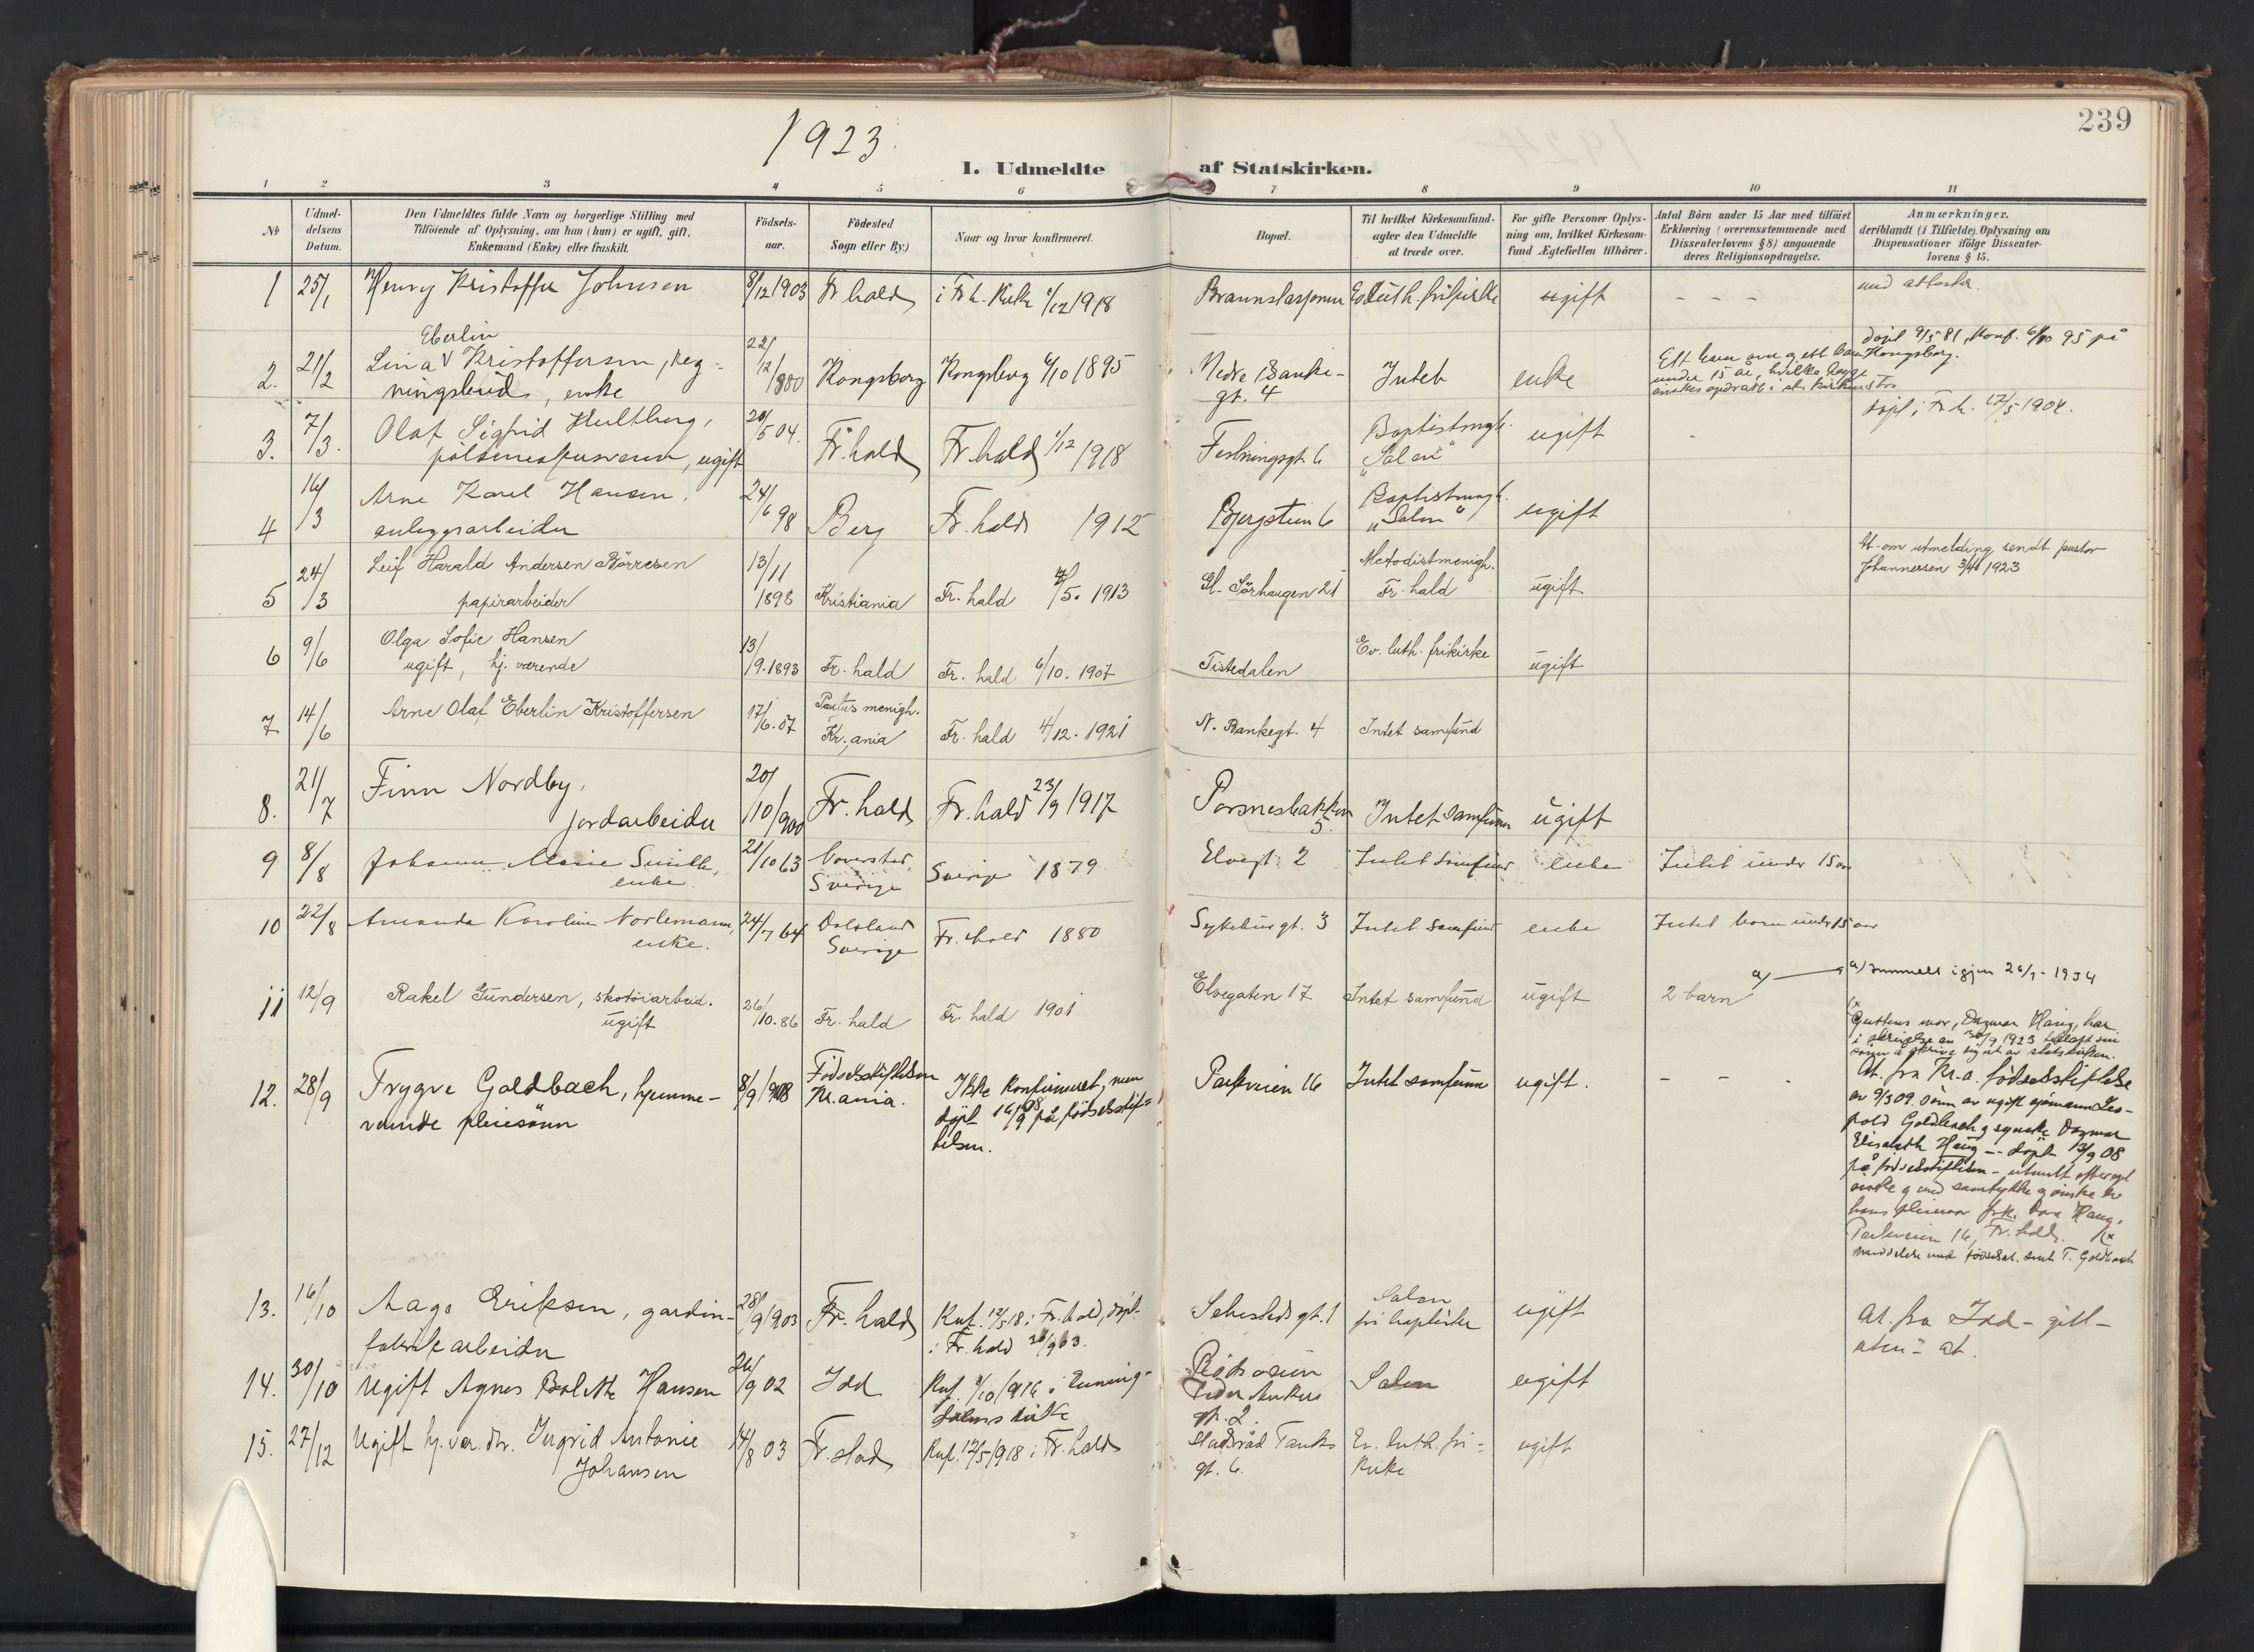 239
1923.
I. Udmeldte af Statskirken.
1 2 3 4 5 6 7 8 9 10 11
No
Udmel-
delsens
Datum.
Den Udmeldtes fulde Navn og borgerlige Stilling med
Tilføiende af Oplysning, om han (hun) er ugift, gift,
Enkemand (Enke) eller fraskilt.
Födsels-
aar.
Födested
Sogn eller By.)
Naar og hvor konfirmeret.
Bopæl.
Til hvilket Kirkesamfund-
agter den Udmeldte
at træde over.
For gifte Personer Oplys-
ning om, hvilket Kirkesam-
fund Ægtefællen tilhörer.
Antal Börn under 15 Aar med tilföiet
Erklæring (overensstemmende med
Dissenterlovens § 8) angaaende
deres Religionsopdragelse.
Anmærkninger.
deriblandt (i Tilfælde) Oplysning om
Dispensationer ifölge Dissenter-
lovens § 15.
1 25/1 Henry Kristoffer Johnsen 8/12 1903 Fr.hald i Fr.h. Kirke 1/12 1918 Brannstasjonen Ev. Luth. frikirke ugift - - - med attester.
Eberlin
2. 21/2 Lina V Kristoffersen, reg-
ningsbud, enke
22/12/1880 Kongsberg Kongsberg 6/10 1895
Nedre Banke-
gt. 4
Intet enke
under 15 år, hvilke begge
döpt 9/5 81, konf. 6/10 95 på
Kongsberg.
3. 7/3. Olaf Sigfrid Hultberg,
ugift
20/5 04. Fr.hald Fr.hald 1/12 1918 Festningsgt. 6
Baptistmgh.
"Salen"
ugift
döpt i Fr.h. 17/5 1904.
4 16/3 Arne Karel Hansen,
anleggsarbeider
24/6 98 Berg Fr.hald 1912 Bjergstien 6
Baptistmngh.
"Salen"
ugift
5 24/3 Leif Harald Andersen Börresen
papirarbeider
13/11
1898 Kristiania Fr. hald /5. 1913 Gl. Sörhaugen 21
Metodistmenigh.
Fr. hald
ugift
At. om utmelding sendt pastor
Johannessen 3/4 1923
6 9/6 Olga Sofie Hansen
ugift, hj. værende
13/9.1893 Fr. hald Fr. hald 6/10. 1907 Tistedalen Ev. luth. frikirke ugift
7 14/6 Arne Olaf Eberlin Kristoffersen 17/6.07
Paulus menigh.
Kr.,ania
Fr. hald 4/12. 1921 N. Bankegt. 4 Intet samfund
8. 21/7 Finn Nordby,
jordarbeider
20/10/900 Fr. hald Fr. hald 23/9 1917
5.
Intet samfunn ugift
9 8/8 Johanne Marie Smith,
enke.
21/10 63
Sverige
Sverige 1879 Elvegt. 2 Intet Samfund enke Intet under 15 aar
10 22/8 Amanda Karoline Norlemann,
enke.
24/7 64 Dalsland
Sverige
Fr. hald 1880 Sykehusgt. 3 Intet Samfund enke Intet barn under 15 aar
11 12/9 Rakel Gundersen, skotöiarbeid.
ugift
26/10.86 Fr. hald Fr. hald 1901 Elvegaten 17 Intet samfund ugift 2 barn a)
a) innmeldt igjen 26/1 - 1934
12. 28/9 Trygve Goldbach, hjemme-
værende pleiesönn
8/9/1908
Födselsstiftelsen
Kr.ania.
Ikke konfirmert, men
döpt 14/9 08 på födselsstif-
telsen.
Parkveien 16 Intet samfunn ugift. - - .
Guttens mor, Dagmar Haug, har
i skrivelse av 30/9 1923 tillatt sin
sönn å skrive sig ut av statskirken.
At. fra Kr.a. födselsstiftelse
av 9/3 09. Sönn av ugift sjömann Leo-
pold Goldbach og syerske Dagmar
Elisabeth Haug — döpt 13/9 08
på födselsstiftelsen - utmeldt efter eget
önske og med samtykke og önske av
hans pleiemor frk. Dora Haug,
Parkveien 16, Fr.hald.
meddelelse med födselsat. sendt T. Goldbach
13. 16/10 Aage Eriksen, gardin-
fabrikkarbeider
28/9 1903 Fr. hald
Knf. 12/5 18 i Fr.hald, döpt
i Fr.hald
Sehesteds gt. 1
Salem
fri baptister
ugift
At. fra Idd -
14. 30/10 Ugift Agnes Bolette Hansen 26/9 02 Idd
Knf. /10 1916 i Enning-
dalens kirke
Peder Ankers
gt. 2.
Salem ugift
15. 27/12 Ugift hj.vær. dtr. Ingrid Antonie
Johansen
14/8 03 Fr.stad Knf. 12/5 1918 i Fr.hald
Stadsråd Tanks
gt. 6.
Ev. luth. fri-
kirke
ugift